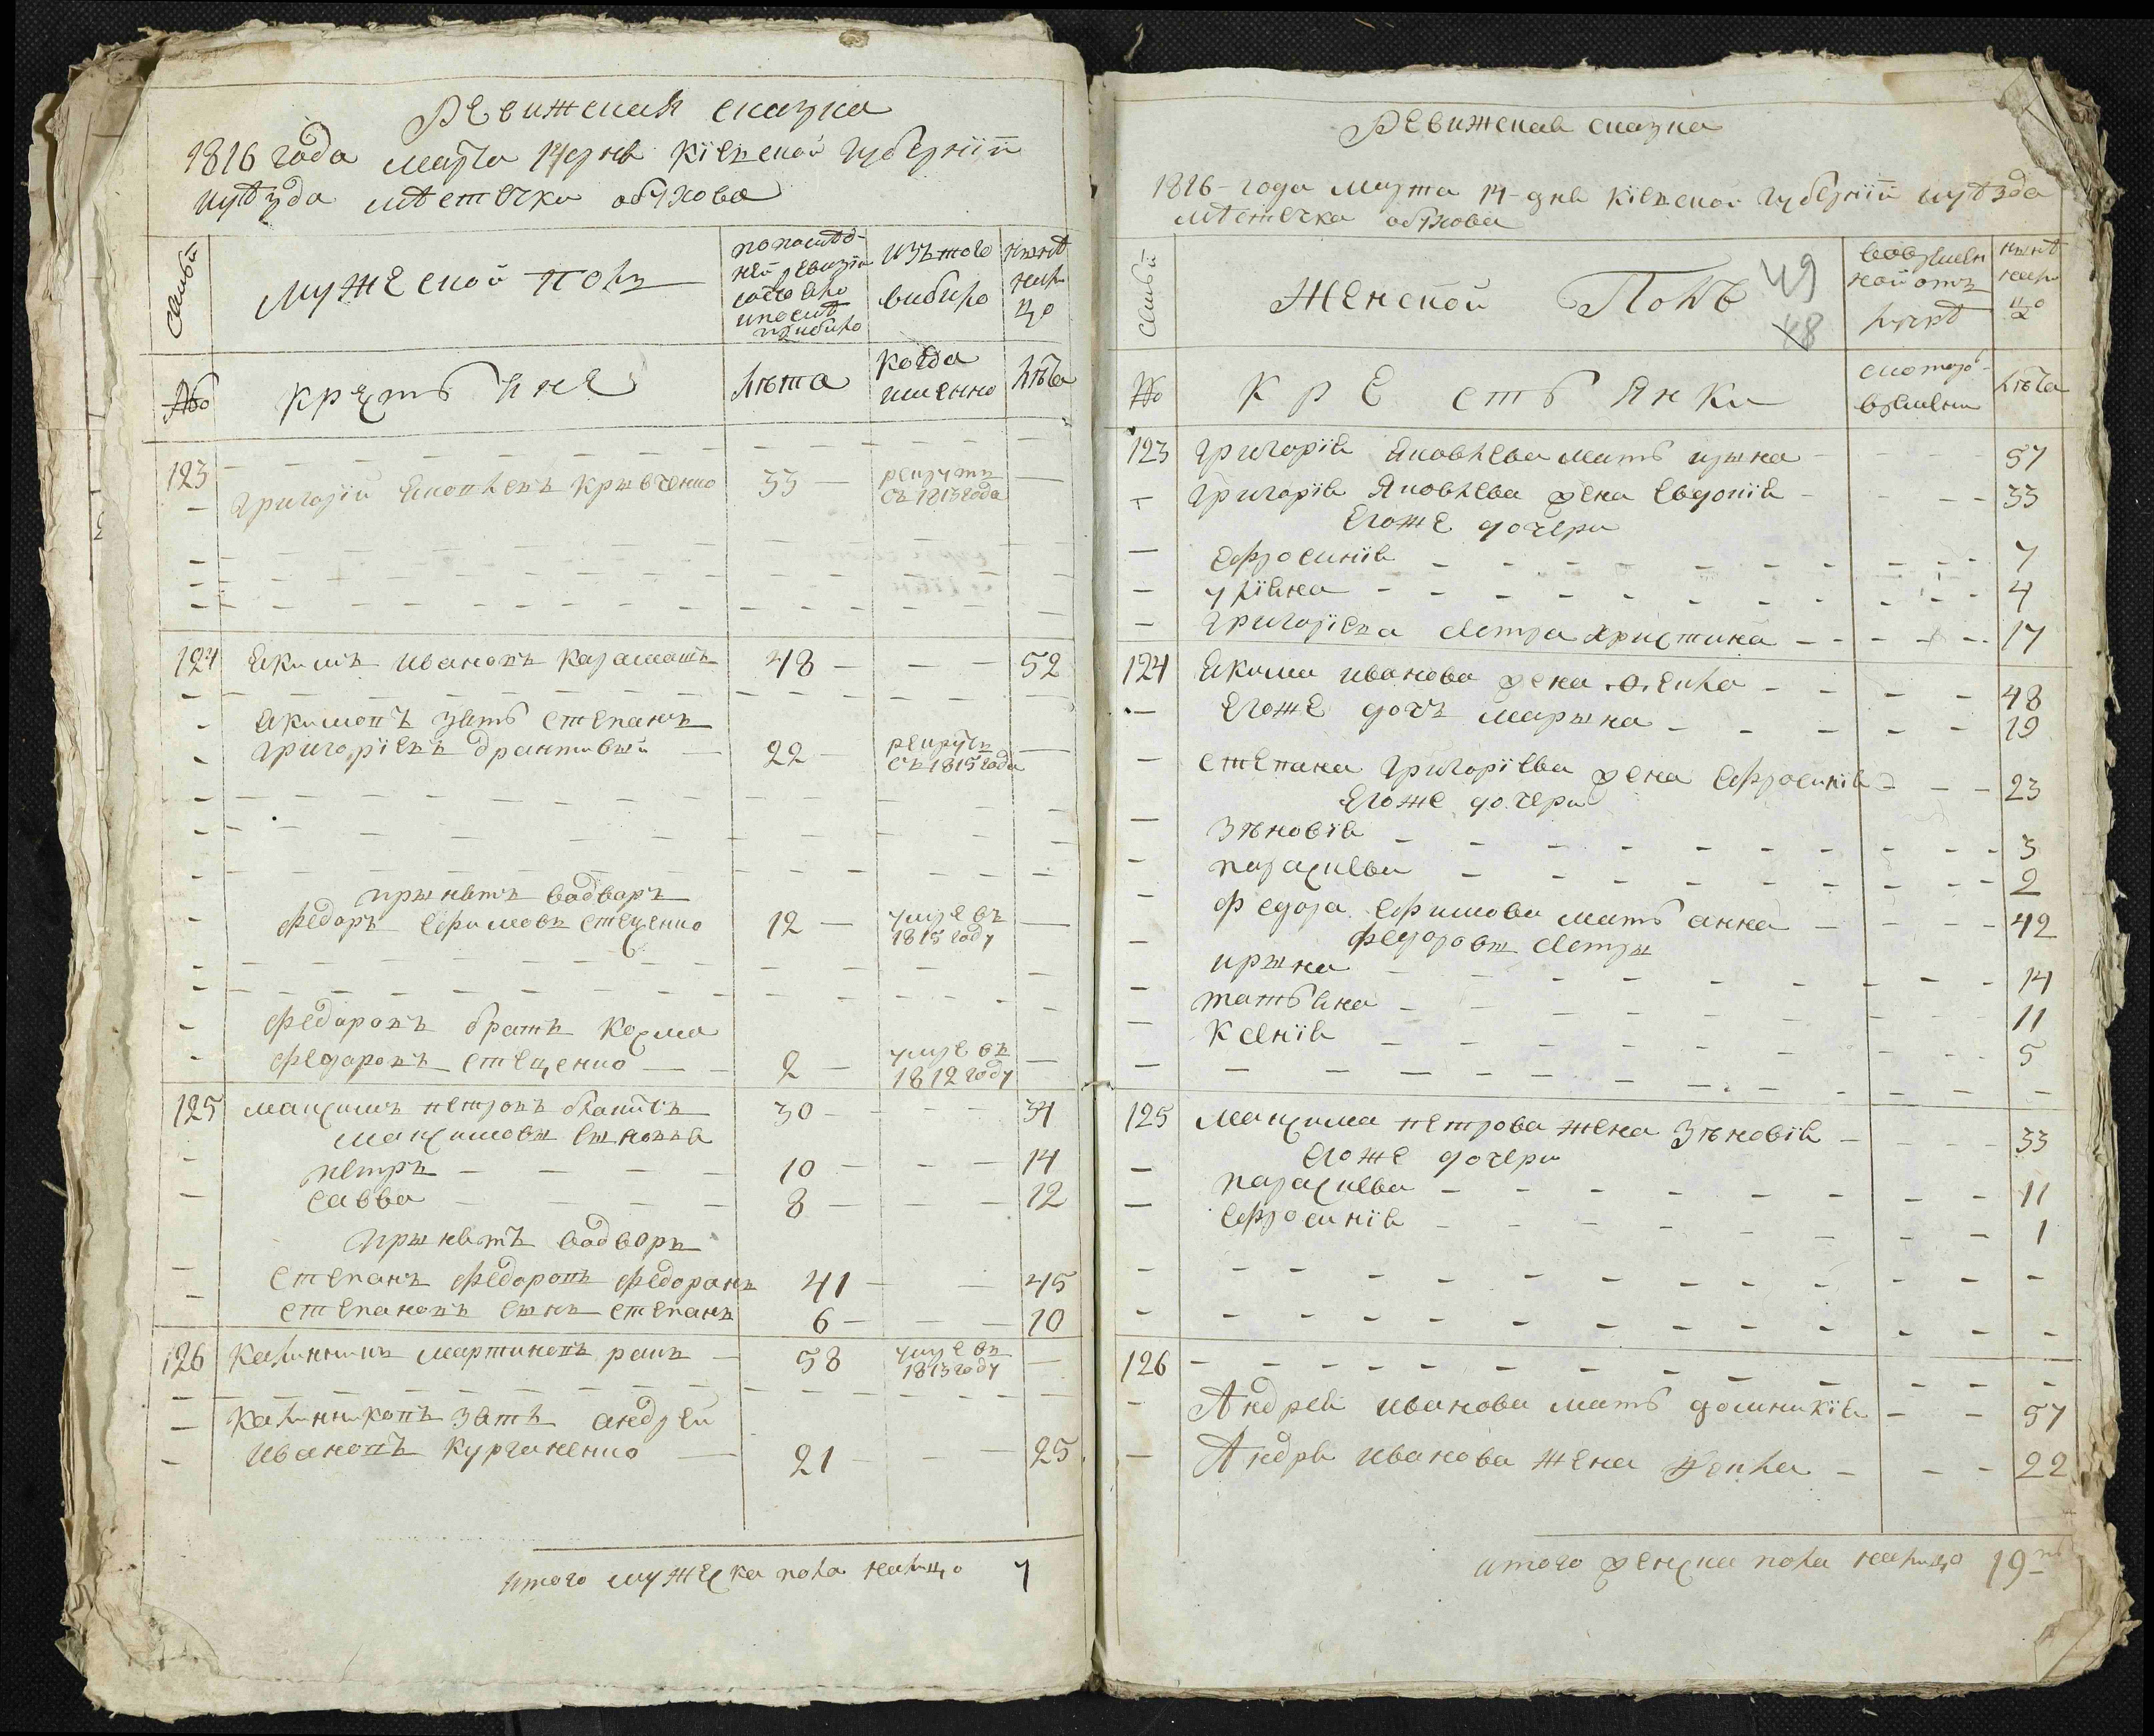 Ревижская сказка
1816 года марта 14 дня Кіевской губерніи
уѣзда мѣстечка обухова
Семьи
мужеской полъ
по послѣд-
ней ревизіи
состояло
и послѣ
прибыло
изъ того
выбыло
нынѣ
нали
цо
№
крестьяне
лѣта
когда
именно
лѣта
123
Григорій Яковлевъ Крывченко 33 рекрутъ
съ 1813 года
124 Якимъ Ивановъ 48 52
Якимовъ зять Степанъ
Григоріевъ Драптивый 22 рекрутъ
съ 1815 года
прынятъ вадворъ
Федоръ Ефимовъ Стеценко 12 умре въ
1815 году
Федоровъ братъ Козма
Федоровъ Стеценко 2 умре въ
1812 году
125 Максимъ Петровъ 30 34
Максимовы сыновья
Петръ 10 14
Савва 8 12
прынятъ вадворъ
Степанъ Федоровъ Федоранъ 41 45
Степановъ сынъ Степанъ 6 10
126 Калинникъ Мартиновъ ракъ 58 умре въ
1813 году
Калинниковъ зять андрей
Ивановъ Курганенко 21 25
Итого мужеска пола налицо 7
Ревижская сказка
1816 года марта 14 дня Кіевской губерніи уѣзда
мѣстечка обухова
49
48
семьи
Женской Полъ
вовремян
ной отъ
лучкѣ
нынѣ
нали
цо
№
Крестьянки
скоторо-
времяни
лѣта
123 Григорія Яковлева мать ирына 57
Григорія Яковлева жена Евдокія 33
Егоже дочери
Ефросинія 7
уліяна 4
Григоріева сестра Христина 17
124 Якима Иванова жена Ѳекла 48
Егоже дочъ марына 19
Степана Григоріева жена Ефросинія 23
Егоже дочери
Зѣновія 3
параскева 2
Федора Ефимова мать анна 42
Федоровы сестры
ирына 14
татьяна 11
Ксенія 5
125 Максима петрова жена Зѣновія 33
Егоже дочери
параскева 11
Ефросинія 1
126
Андрея Иванова мать домникія 57
Андрея Иванова жена Ѳекла 22
итого женска пола налицо 19